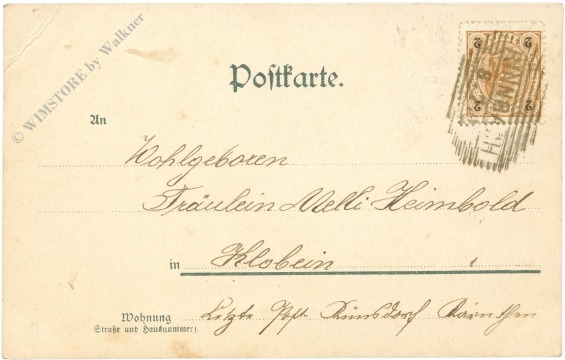 © WIMSTORE by Walkner
2 2
2 2
Postkarte.
An
Wohlgeboren
Fräulein Melli Heimbold
in Klobein
Wohnung
(Straße und Hausnummer).
Letzte Post Künsdorf Kärnthen